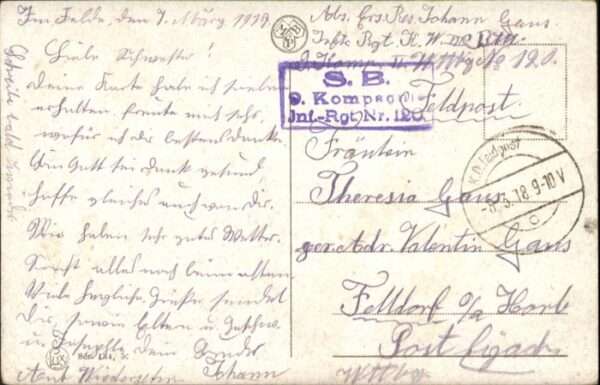 Im Felde, den 7. März 1918
Liebe Schwester!
Deine Karte habe ich soeben
erhalten, freute mich sehr,
wofür ich dir bestens danke.
Bin Gott sei Dank gesund,
hoffe gleiches auch von dir.
Wir haben sehr gutes Wetter.
Sonst alles noch beim alten.
Viele herzliche Grüße sendet
dir, sowie Eltern u. Geschw.
dein Bruder
Johann
Auf Wiedersehn
Schreibe bald wieder
Abs. Ers. Res. Johann Gaus.
Inftr. Rgt. K. W.
9. Komp. Wttbg No 120.
S. B.
9. Kompagnie
Inf.-Rgt. Nr. 120
Feldpost.
K.D. Feldpost
-8.3.18 9-10 V
c
Fräulein
Theresia Gaus
per Adr. Valentin Gaus
Felldorf o/a Horb
Post
Wttbg